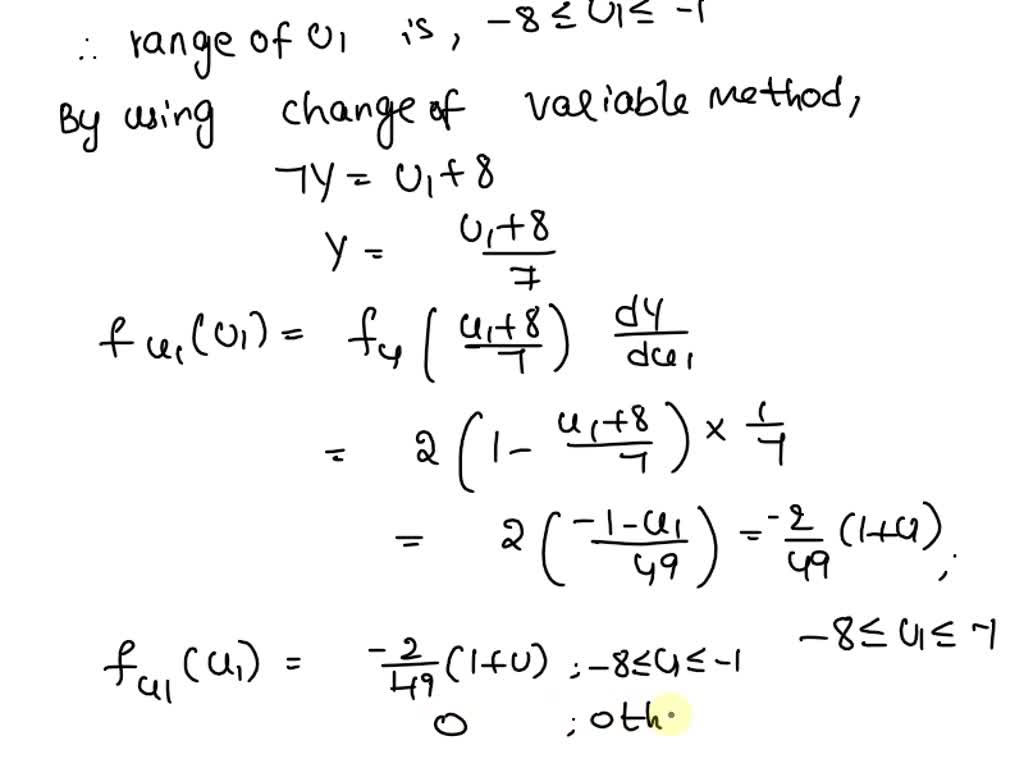 ∴ range of U1 is, -8 ≤ U1 ≤ -1
By using change of variable method,
7Y = U1+8
Y = (U1+8)/7
fu1(U1) = fy((u1+8)/7) dY/du1
= 2(1 - (u1+8)/7) × 1/7
= 2((-1-u1)/49) = -2/49 (1+u) ;
-8 ≤ u1 ≤ -1
fu1(u1) = -2/49 (1+u) ; -8≤u≤-1
0 ; oth